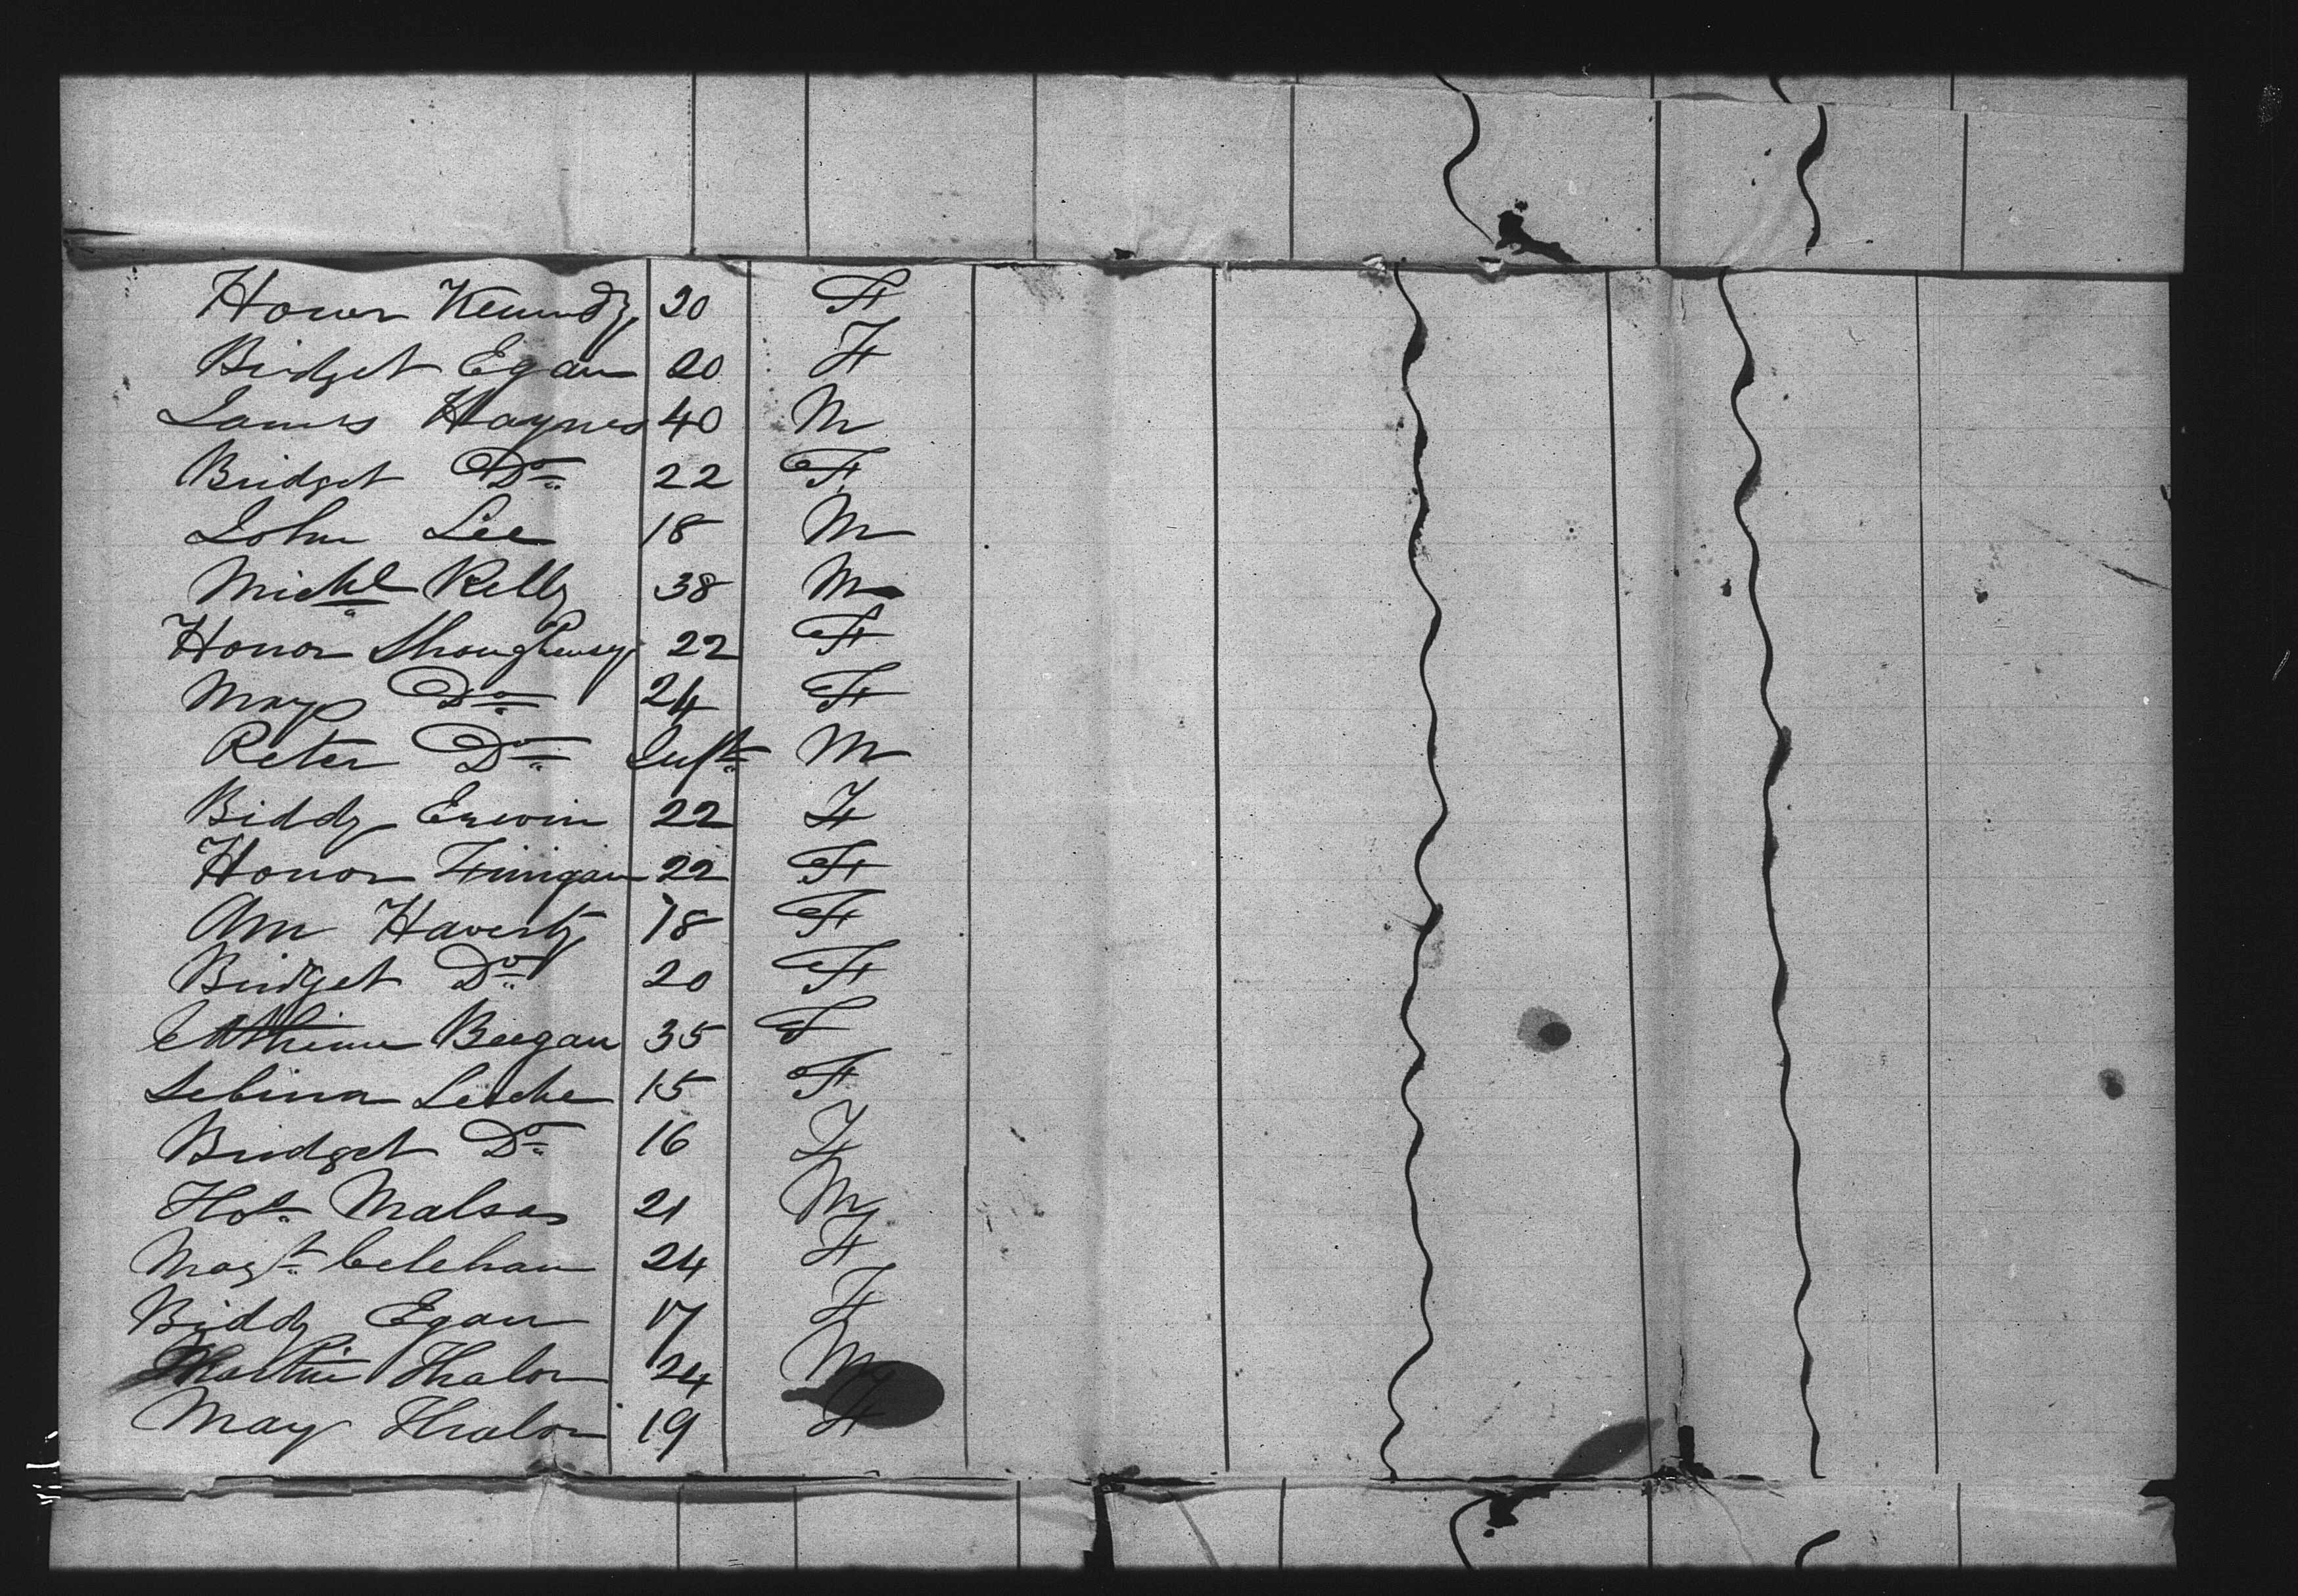 Honor Kennedy 20 F
Bridget Egan 20 F
James Haynes 40 M
Bridget Do 22 F
John Lee 18 M
Michl Kelly 38 M
Honor Shoughnesy 22 F
Mary Do 24 F
Peter Do Inft M
Biddy Erwin 22 F
Honor Finigan 22 F
Ann Haverty 18 F
Bridget Do 20 F
Beegan 35 F
Sebina Leiche 15 F
Bridget Do 16 F
21 M
Magt Celehan 24 F
Biddy Egan 17 F
Martin Thalon 24 M
Mary Thalon 19 F